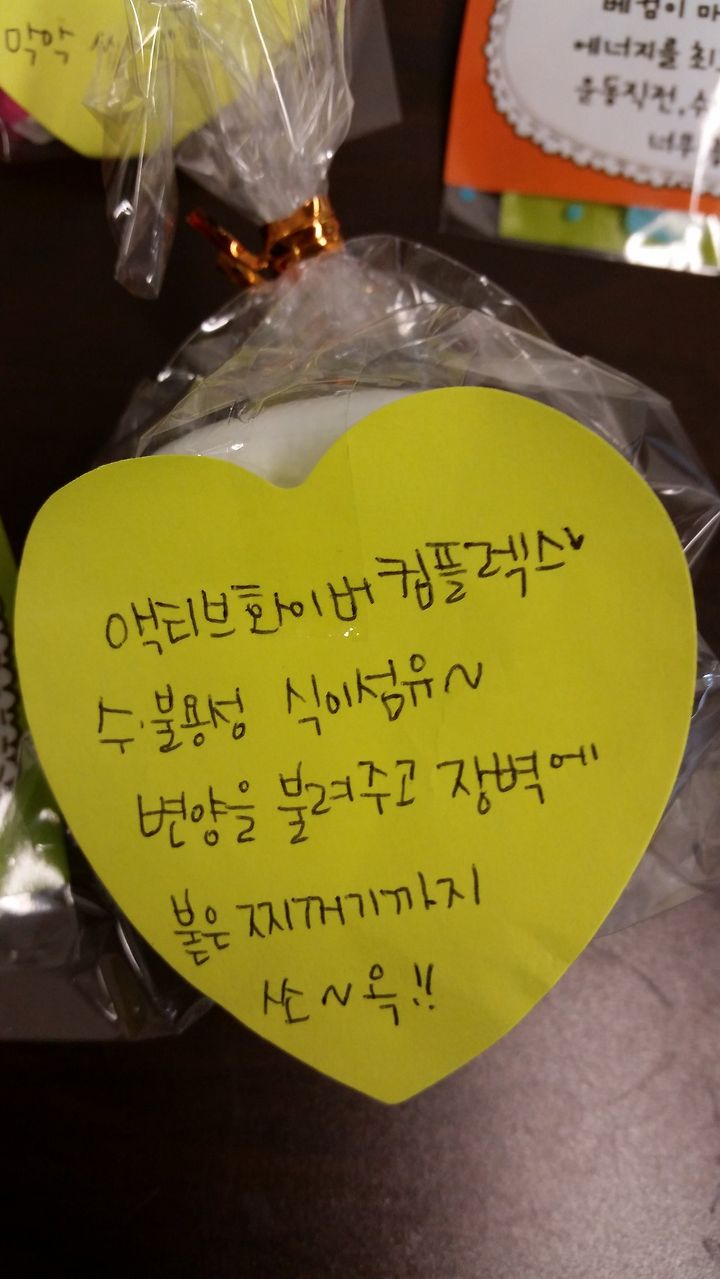 막막
베컴이 마
에너지를 최
운동직전,수
너무
액티브화이버컴플렉스
수·불용성 식이섬유~
변양을 불려주고 장벽에
붙은 찌꺼기까지
쏘~옥!!